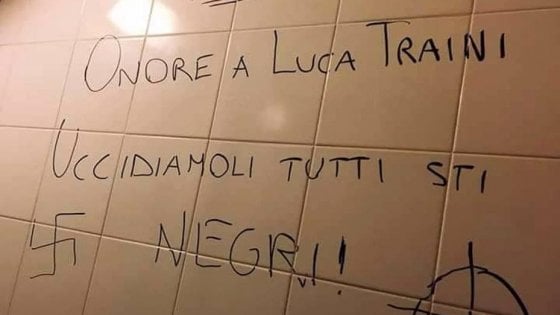 ONORE A LUCA TRAINI
UCCIDIAMOLI TUTTI STI
NEGRI!